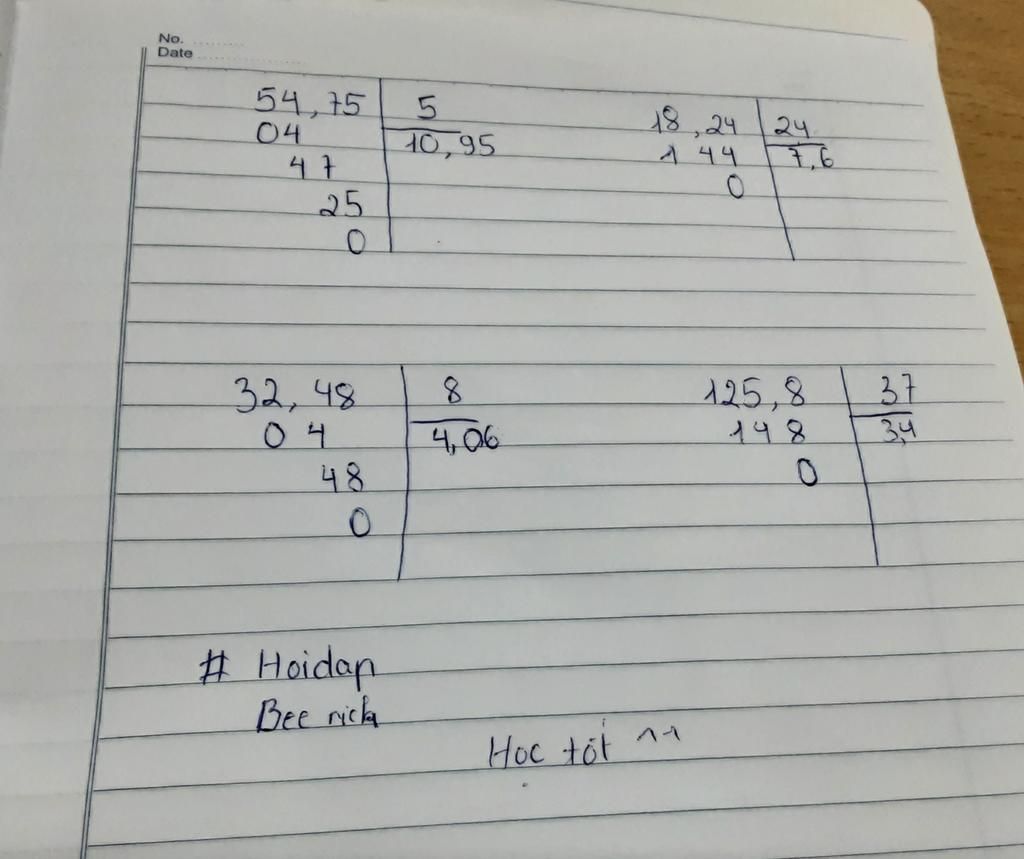 No. ............
Date ........................
54,75 5
04 10,95
47
25
0
18,24 24
1 44 7,6
0
32,48 8
0 4 4,06
48
0
125,8 37
148 3,4
0
# Hoidap
Bee rick
Học tốt ^-^